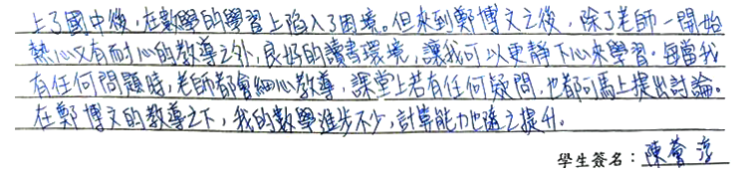 上了國中後，在數學的學習上陷入了困境。但來到鄭博文之後，除了老師一開始
熱心又有耐心的教導之外，良好的讀書環境，讓我可以更靜下心來學習。每當我
有任何問題時，老師都會細心教導，課堂上若有任何疑問，也都可馬上提出討論。
在鄭博文的教導之下，我的數學進步不少，計算能力也隨之提升。
學生簽名：陳薈淳